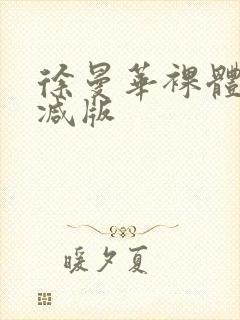 徐曼華裸體
减版
暖夕夏